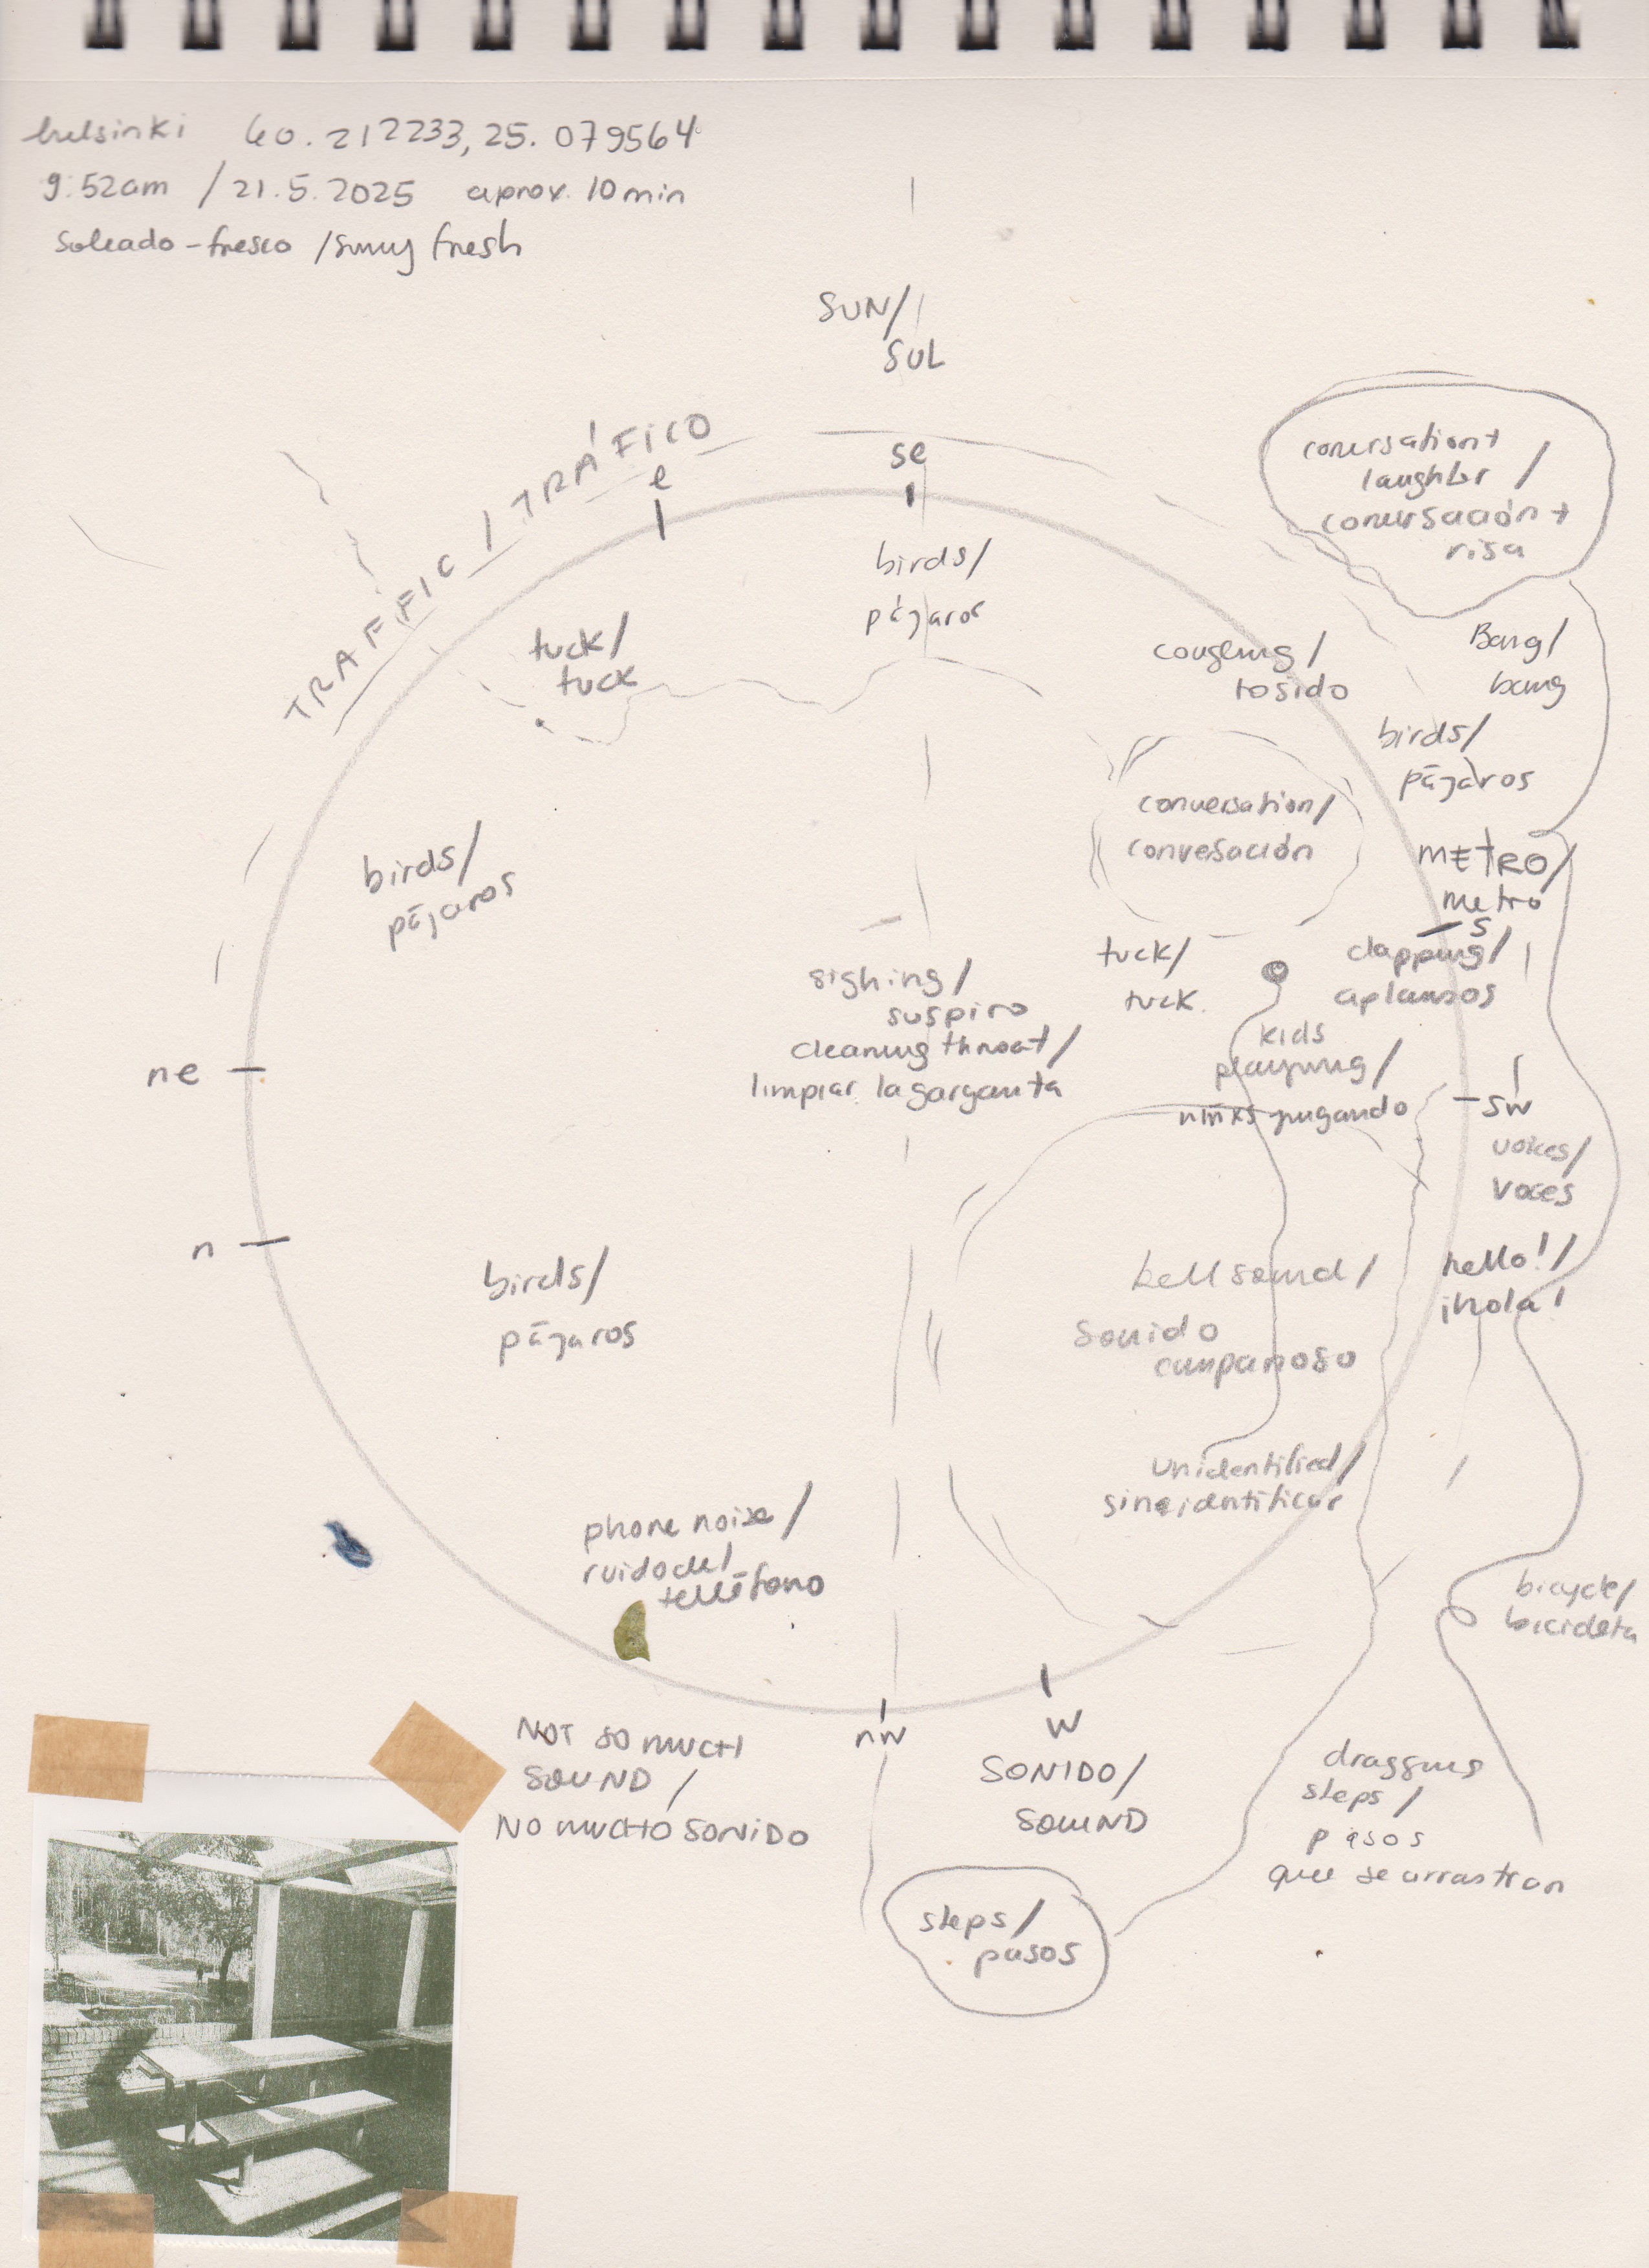 helsinki 60.212233, 25.079564
9:52am / 21.5.2025 aprox. 10min
soleado-fresco / sunny fresh
SUN/
SUL
TRAFFIC / TRÁFICO
e
se
birds/
pájaros
conersation+
laughter /
conersación+
risa
tuck/
tuck
coughing /
tosido
Bang/
bang
birds/
pájaros
conversation/
convesación
METRO/
metro
s
birds/
pájaros
sighing /
suspiro
cleaning throat /
limpiar la garganta
tuck/
tuck.
clapping/
aplausos
kids
playing /
niñxs jugando
ne
sw
voices/
voces
n
birds/
pájaros
bell sound /
sonido
campanoso
hello! /
¡hola!
unidentified/
sin identificar
phone noise /
ruido del
teléfono
bicycle/
bicicleta
nw
w
NOT SO MUCH
SOUND /
NO MUCHO SONIDO
SONIDO/
SOUND
dragging
steps /
pasos
que se arrastran
steps/
pasos